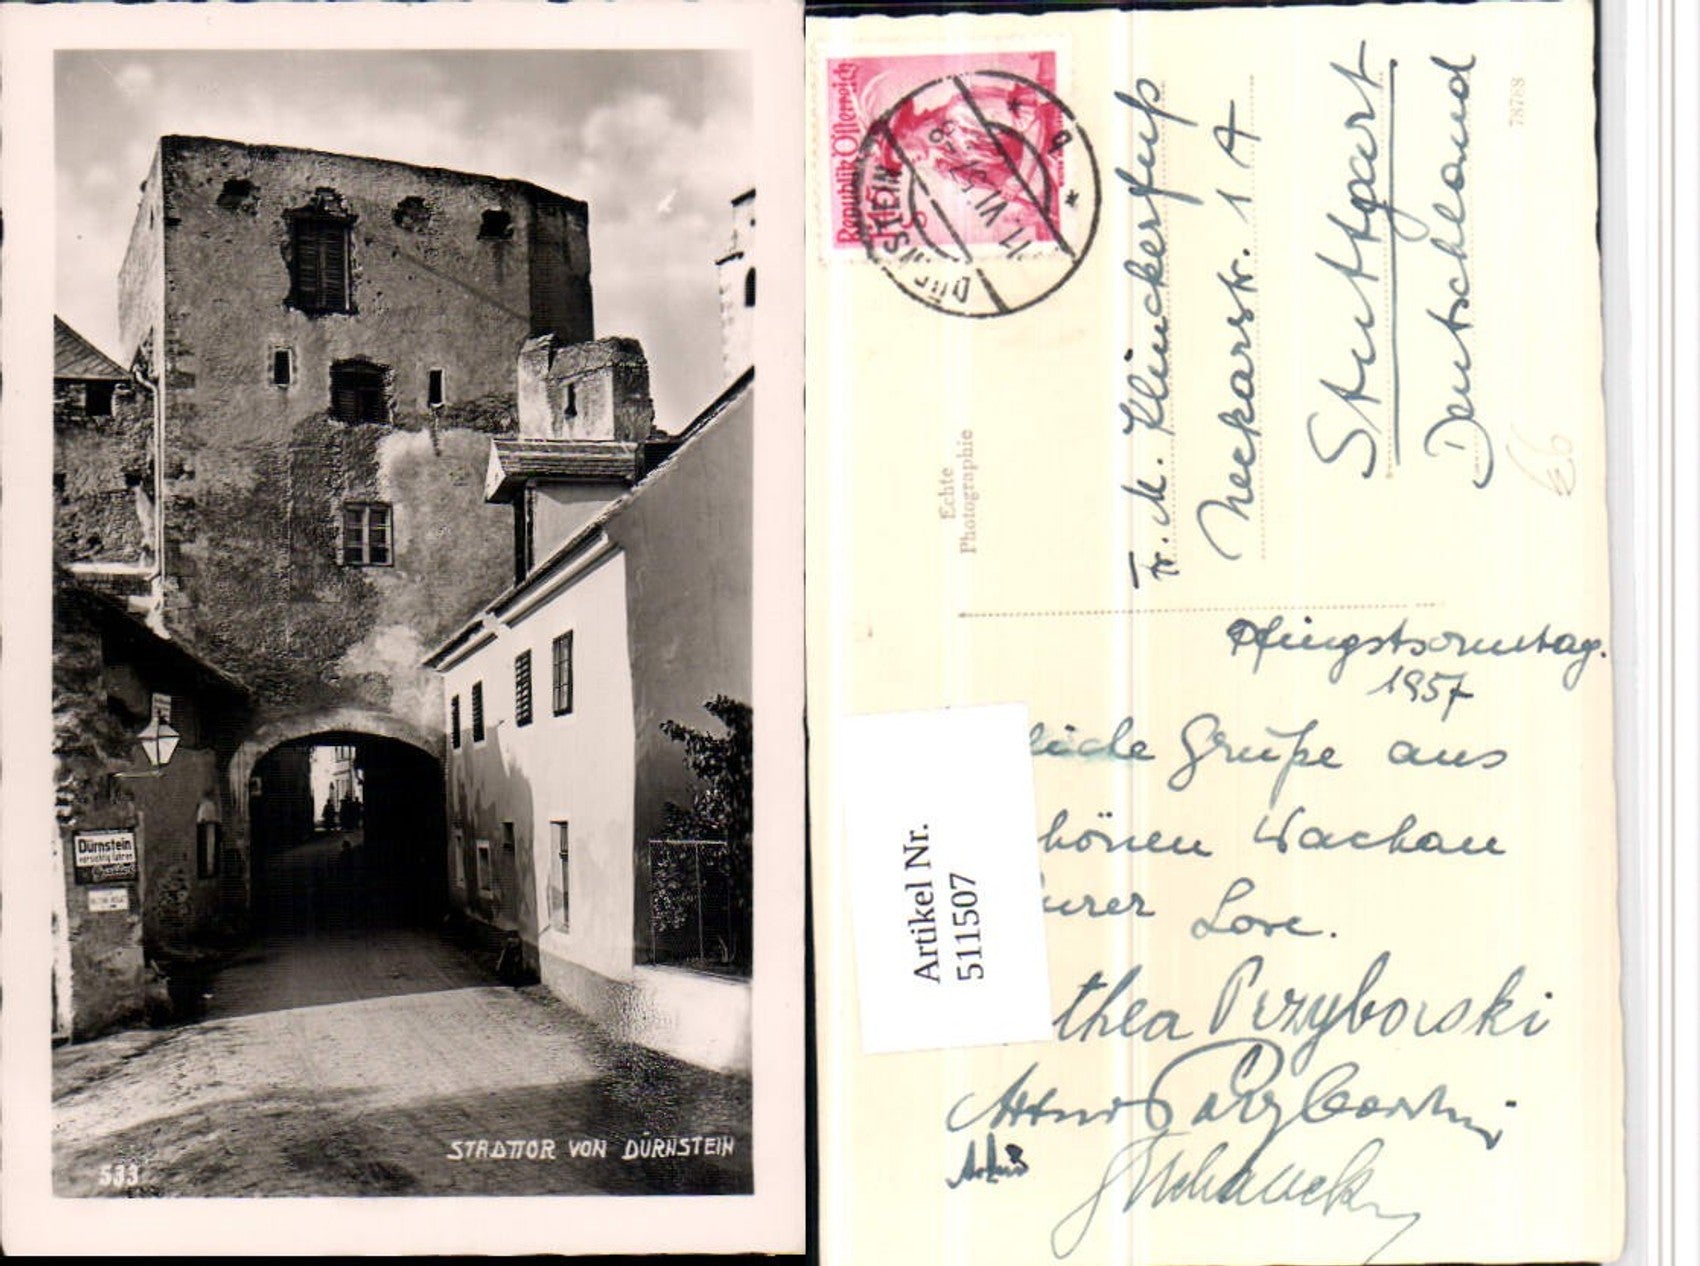 Dürnstein
vorsichtig fahren
533
STADTTOR VON DÜRNSTEIN
Republik Österreich
DÜRNSTEIN
11. VI 57-8
b
Echte
Photographie
78788
Fr. M. Klinckerfuß
Neckarstr. 1 A
Stuttgart
Deutschland
66
Pfingstsonntag.
1957
liche Grüße aus
hönen Wachau
urer Lore.
thea Przyborski
Artur Przyborski
Artikel Nr.
511507